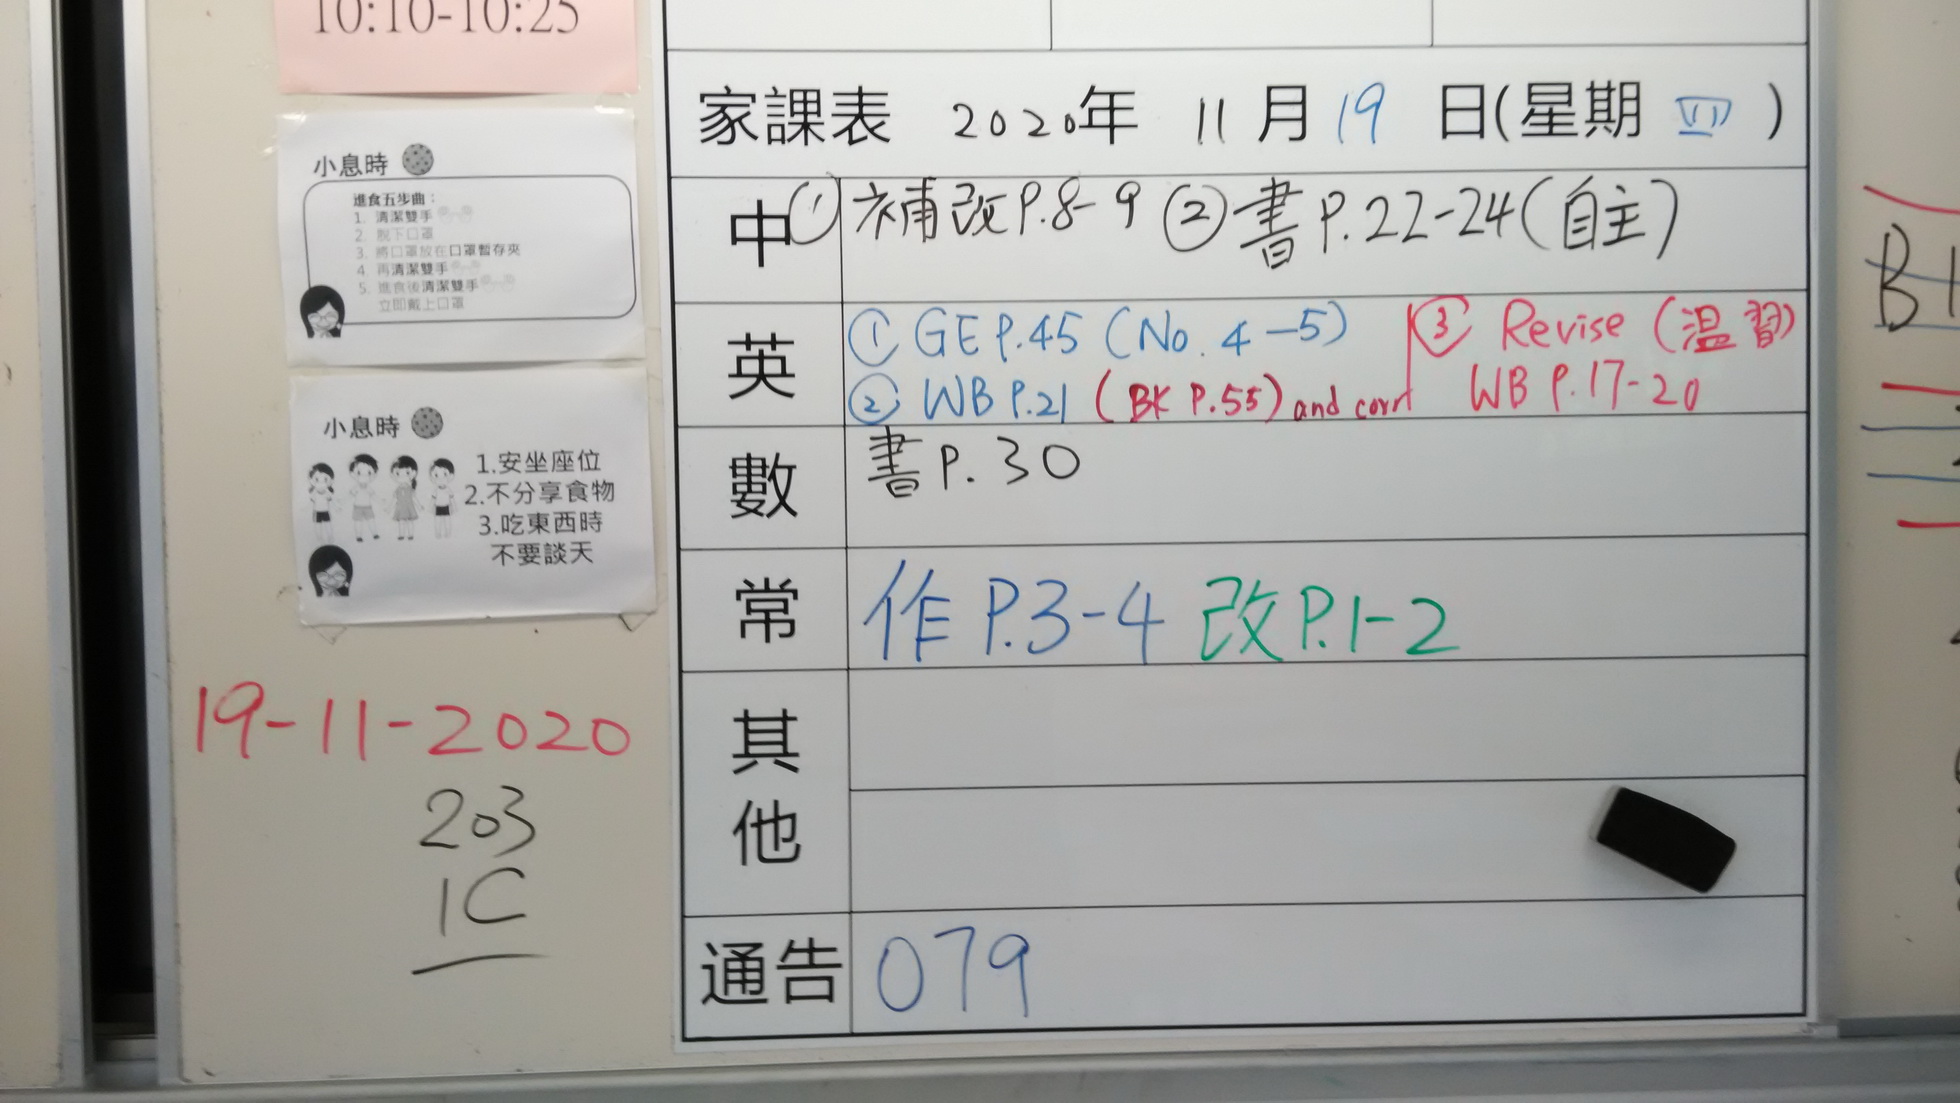 10:10-10:25
小息時
進食五步曲：
1. 清潔雙手
2. 脫下口罩
3. 將口罩放在口罩暫存夾
4. 再清潔雙手
5. 進食後清潔雙手
立即戴上口罩
小息時
1.安坐座位
2.不分享食物
3.吃東西時
不要談天
19-11-2020
203
1C
家課表 2020年 11月19日(星期四)
中 ① 補改P.8-9 ②書P.22-24(自主)
英 ① GE P.45 (No. 4-5)
② WB P.21 (BK P.55) and corr
③ Revise (溫習)
WB P.17-20
數 書P.30
常 作P.3-4 改P.1-2
其他
通告 079